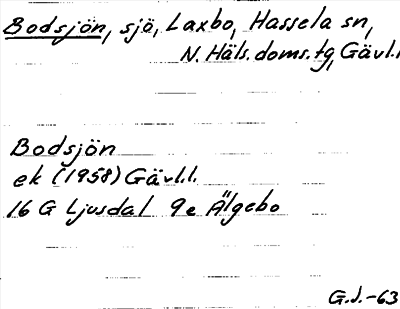 Bodsjön, sjö, Laxbo, Hassela sn,
N. Häls. doms. tg, Gävl.l
Bodsjön
ek (1958) Gävl.l.
16 G Ljusdal 9e Älgebo
G.J.-63